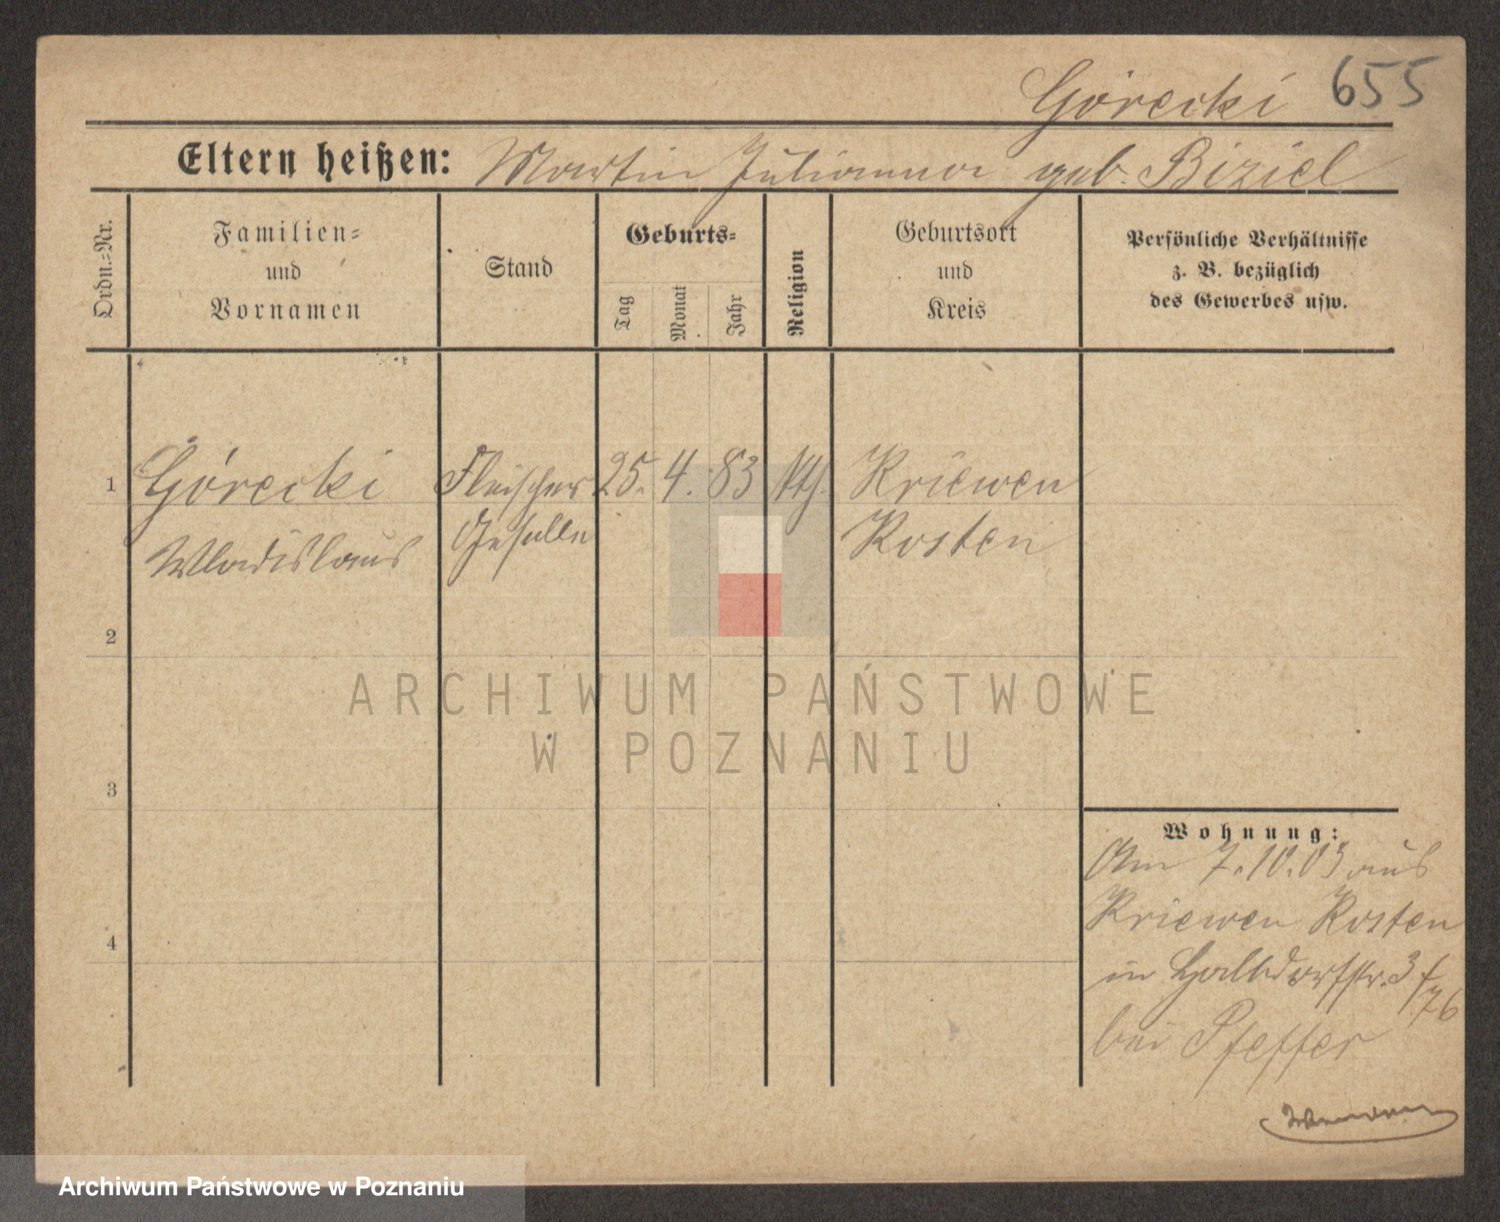 Górecki 655
Eltern heißen: Martin Julianna geb. Biziel
Ordn.-Nr.
Familien-
und
Vornamen
Stand
Geburts-
Tag
Monat
Jahr
Religion
Geburtsort
und
Kreis
Persönliche Verhältnisse
z. B. bezüglich
des Gewerbes usw.
1 Górecki Fleischer 25. 4. 83 kth. Kriewen
Wladislaus Geselle Kosten
2
3
4
ARCHIWUM PAŃSTWOWE
W POZNANIU
Wohnung:
Am 7.10.03 aus
Kriewen Kosten
in Halbdorfstr. 3
bei Pfeffer
Archiwum Państwowe w Poznaniu